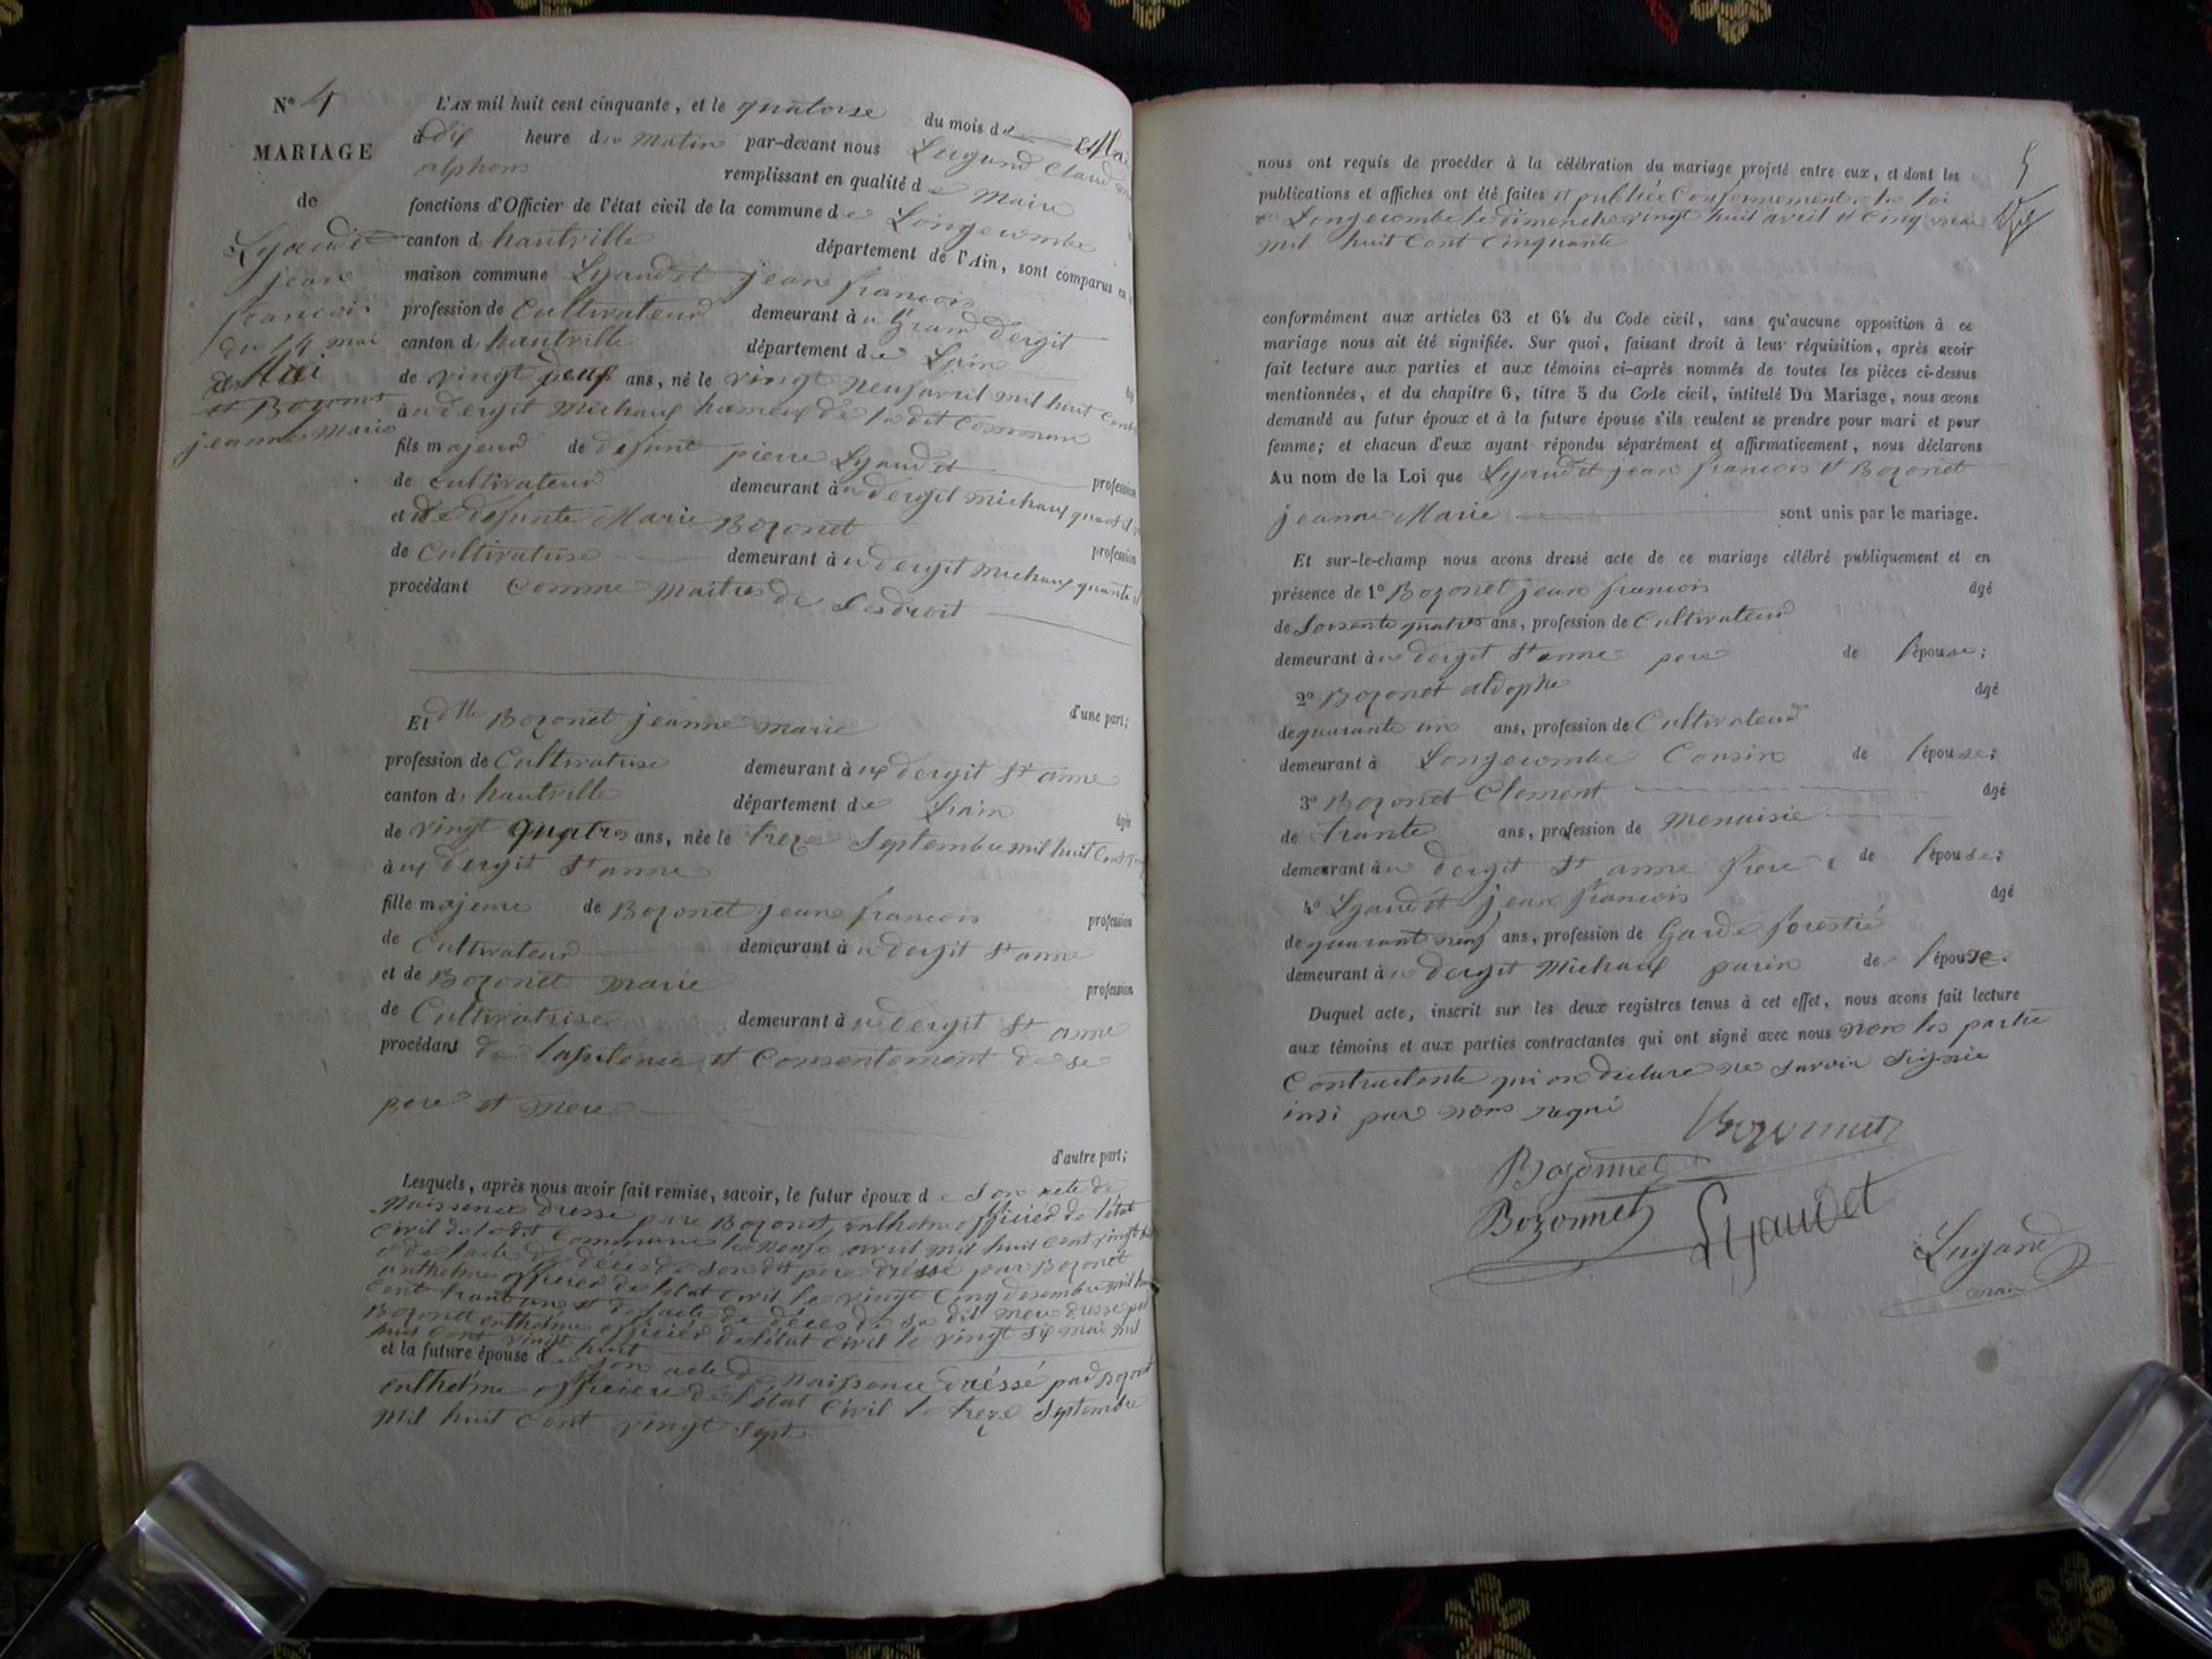 N° 4
MARIAGE
de
Lyaudet
jean
francois
du 14 mai
et Bozonet
jeanne Marie
L'AN mil huit cent cinquante, et le quatorse du mois de Mai
à dix heure du Matin par-devant nous Lugand Claude
alphons remplissant en qualité de Maire
fonctions d'Officier de l'état civil de la commune de Longecombe
canton d hautville département de l'Ain, sont comparus en
maison commune Lyaudet jean francois
profession de Cultivateur demeurant à u grand dergit
canton d hautville département de Lain
de vingt neuf ans, né le vingt neuf avril mil huit cent
à u dergit Michaux hameux de ladit Commune
fils majeur de defunt pierre Lyaudet profession
de Cultivateur demeurant à u dergit michaux quant il
et de defunte Marie Bozonet profession
de Cultivatrise demeurant à u dergit michaux quante
procédant Comme Maitres de Ses droit
d'une part;
Et dlle Bozonet jeanne marie
profession de Cultivatrise demeurant à ux dergit St anne
canton d hautville département de Lain
de vingt quatres ans, née le treze Septembre mil huit Cent
à ux dergit St anne
fille majeure de Bozonet jean francois profession
de Cultivateur demeurant à u dergit St anne
et de Bozonet marie profession
de Cultivatrise demeurant à u dergit St anne
procédant de lasistence et Consentement de se
pere et Mere
d'autre part;
Lesquels, après nous avoir fait remise, savoir, le futur époux de Son acte de
Naissence dressé par Bozonet enthelme officier de l'état
Civil de ladit Commune le avril mil huit Cent vingt
et de l'acte de décès de son dit pere dréssé par Bozonet
anthelme officier de l'état Civil le vingt Cinq desembre mil
Cent trant un et de lacte de déces de sa dit mere dresse par
Bozonet enthelme officier de l'état Civil le vingt six mai mil
huit Cent vingt huit
et la future épouse de son acte de Naissence dréssé par Bozonet
enthelme officier de l'état Civil le treze Septembre
Mil huit Cent vingt Sept
5
nous ont requis de procéder à la célébration du mariage projeté entre eux, et dont les
publications et affiches ont été faites et publiée Conformement a la loi
a Longecombe le dimenche vingt huit avril et Cinq mai
mil huit Cent Cinquante
conformément aux articles 63 et 64 du Code civil, sans qu'aucune opposition à ce
mariage nous ait été signifiée. Sur quoi, faisant droit à leur réquisition, après avoir
fait lecture aux parties et aux témoins ci-après nommés de toutes les pièces ci-dessus
mentionnées, et du chapitre 6, titre 5 du Code civil, intitulé Du Mariage, nous avons
demandé au futur époux et à la future épouse s'ils veulent se prendre pour mari et pour
femme; et chacun d'eux ayant répondu séparément et affirmativement, nous déclarons
Au nom de la Loi que Lyaudet jean francois et Bozonet
jeanne Marie sont unis par le mariage.
Et sur-le-champ nous avons dressé acte de ce mariage célébré publiquement et en
présence de 1° Bozonet jean francois âgé
de Soisente quatres ans, profession de Cultivateur
demeurant à u dergit St anne pere de l'épouse;
2° Bozonet aldophe âgé
de quarante un ans, profession de Cultivateur
demeurant à Longecombe Cousin de l'épouse;
3° Bozonet Clement âgé
de trante ans, profession de menuisié
demeurant à u dergit St anne frere de l'épouse;
4° Lyaudet jean francois âgé
de quarant neuf ans, profession de Garde forestié
demeurant à u dergit Michaux parin de l'épouse.
Duquel acte, inscrit sur les deux registres tenus à cet effet, nous avons fait lecture
aux témoins et aux parties contractantes qui ont signé avec nous non les partie
Contractente qui on declare ne savoir Signie
insi par nous requi
Bozonnet
Bozonnet
Bozonnet
Lyaudet
Lugand
maire